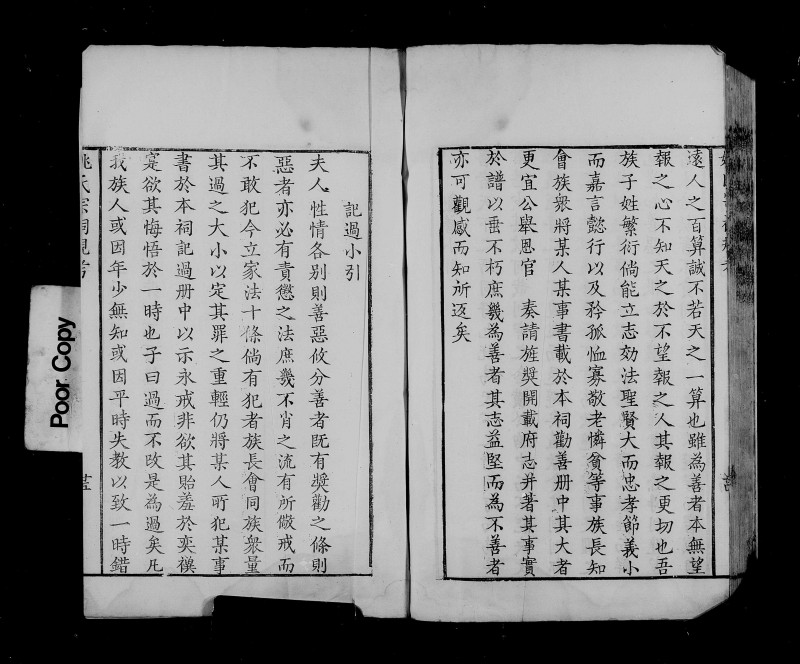 遠人之百算誠不若天之一算也雖為善者本無望
報之心不知天之於不望報之人其報之更切也吾
族子姓繁衍倘能立志効法聖賢大而忠孝節義小
而嘉言懿行以及矜孤恤寡敬老憐貧等事族長知
會族衆將某人某事書載於本祠勸善册中其大者
更宜公舉恩官 奏請旌獎開載府志并著其事實
於譜以垂不朽庶幾為善者其志益堅而為不善者
亦可觀感而知所返矣
記過小引
夫人性情各别則善惡攸分善者既有獎勸之條則
惡者亦必有責懲之法庶幾不肖之流有所儆戒而
不敢犯今立家法十條倘有犯者族長會同族衆量
其過之大小以定其罪之重輕仍將某人所犯某事
書於本祠記過册中以示永戒非欲其貽羞於奕禩
寔欲其悔悟於一時也子曰過而不改是為過矣凡
我族人或因年少無知或因平時失教以致一時錯
姚氏宗祠規
Poor Copy